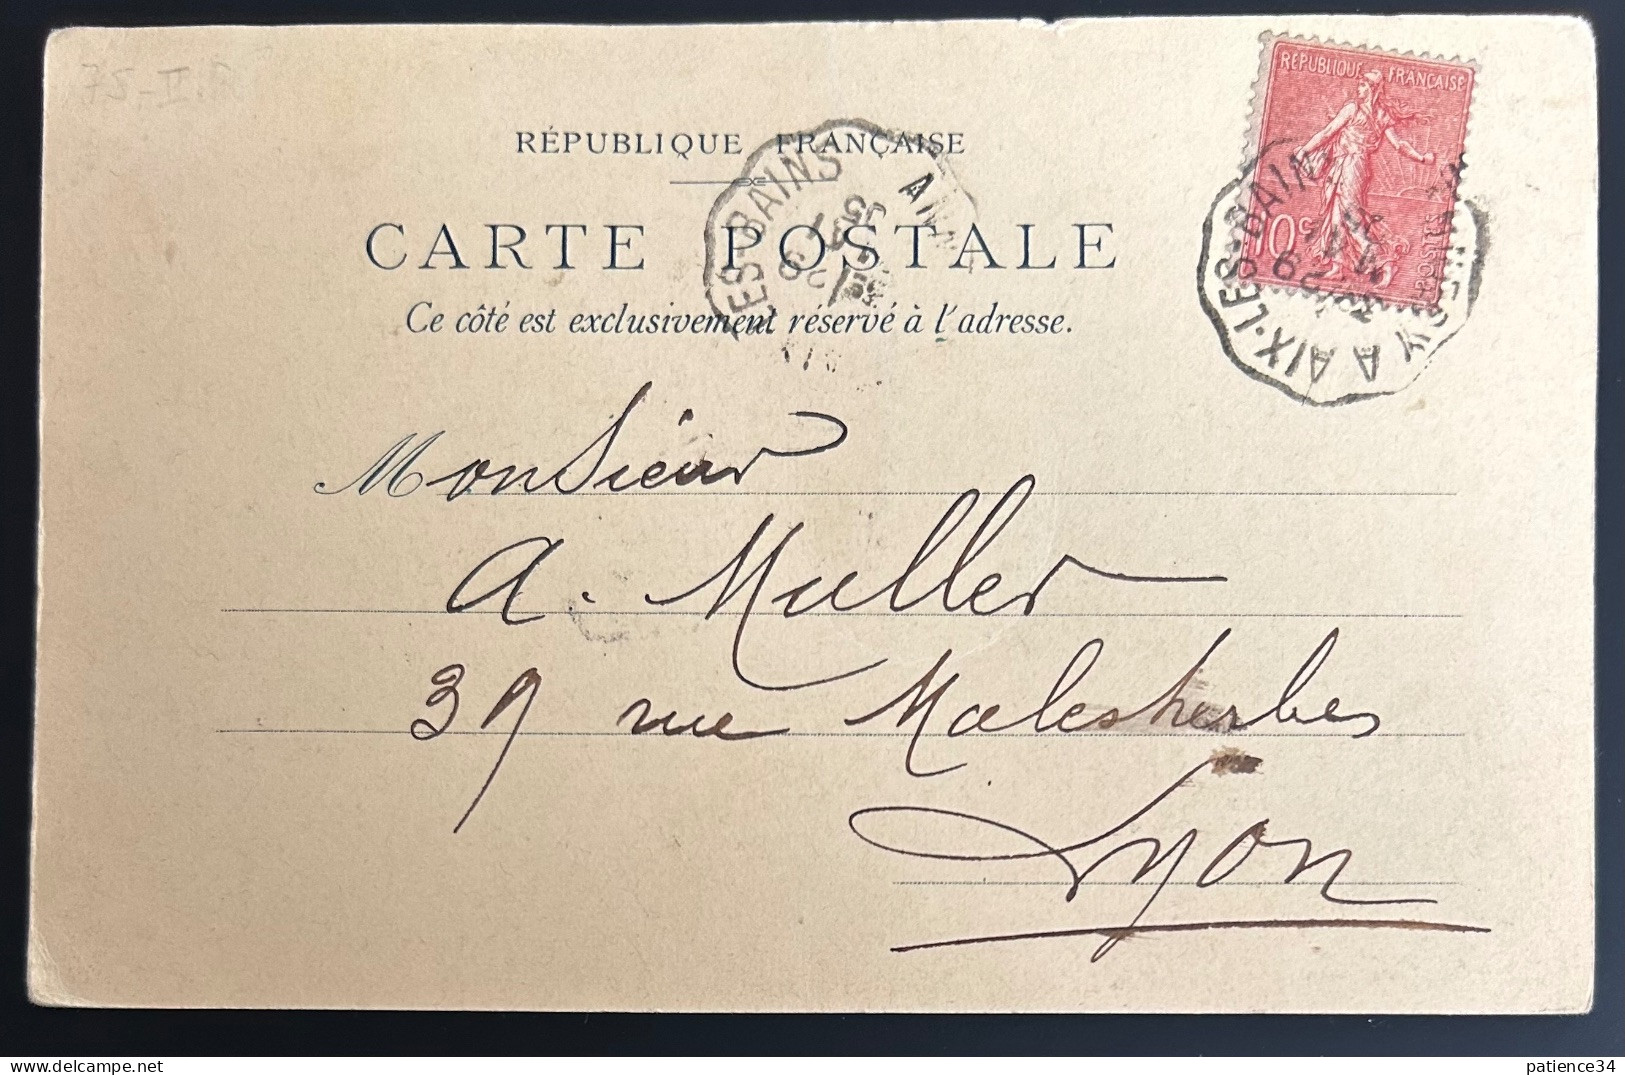 75-II.
RÉPUBLIQUE FRANÇAISE
CARTE POSTALE
Ce côté est exclusivement réservé à l'adresse.
RÉPUBLIQUE FRANÇAISE
10c
LES-BAINS
A AIX-LES-BAINS
Monsieur
A. Muller
39 rue Malesherbes
Lyon
patience34